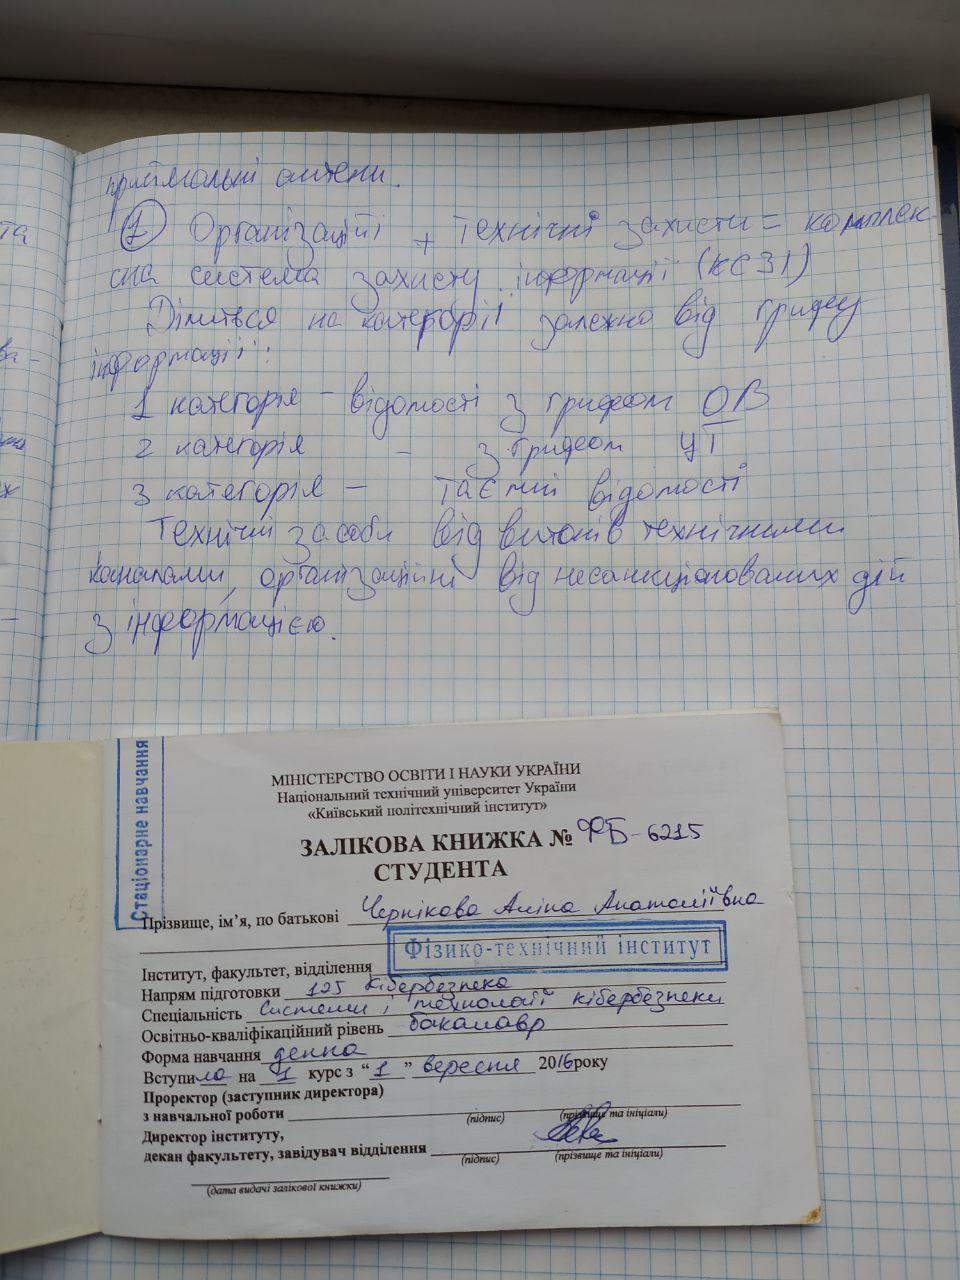 приймальні антени.
① Організаційні + технічні захисти = комплек-
сна система захисту інформації (КСЗІ)
Ділиться на категорії залежно від грифу
інформації:
1 категорія – відомості з грифом ОВ
2 категорія – з грифом ЦТ
3 категорія – таємні відомості
Технічні засоби від витоків технічними
каналами, організаційні від несанкціонованих дій
з інформацією.
та
ва-
Стаціонарне навчання
МІНІСТЕРСТВО ОСВІТИ І НАУКИ УКРАЇНИ
Національний технічний університет України
«Київський політехнічний інститут»
ЗАЛІКОВА КНИЖКА № ФБ-6215
СТУДЕНТА
Прізвище, ім’я, по батькові Чернікова Аліна Анатоліївна
Фізико-технічний інститут
Інститут, факультет, відділення
Напрям підготовки 125 Кібербезпека
Спеціальність Системи і технології кібербезпеки
Освітньо-кваліфікаційний рівень бакалавр
Форма навчання денна
Вступила на 1 курс з “1” вересня 2016 року
Проректор (заступник директора)
з навчальної роботи
(підпис) (прізвище та ініціали)
Директор інституту,
декан факультету, завідувач відділення
(підпис) (прізвище та ініціали)
(дата видачі залікової книжки)